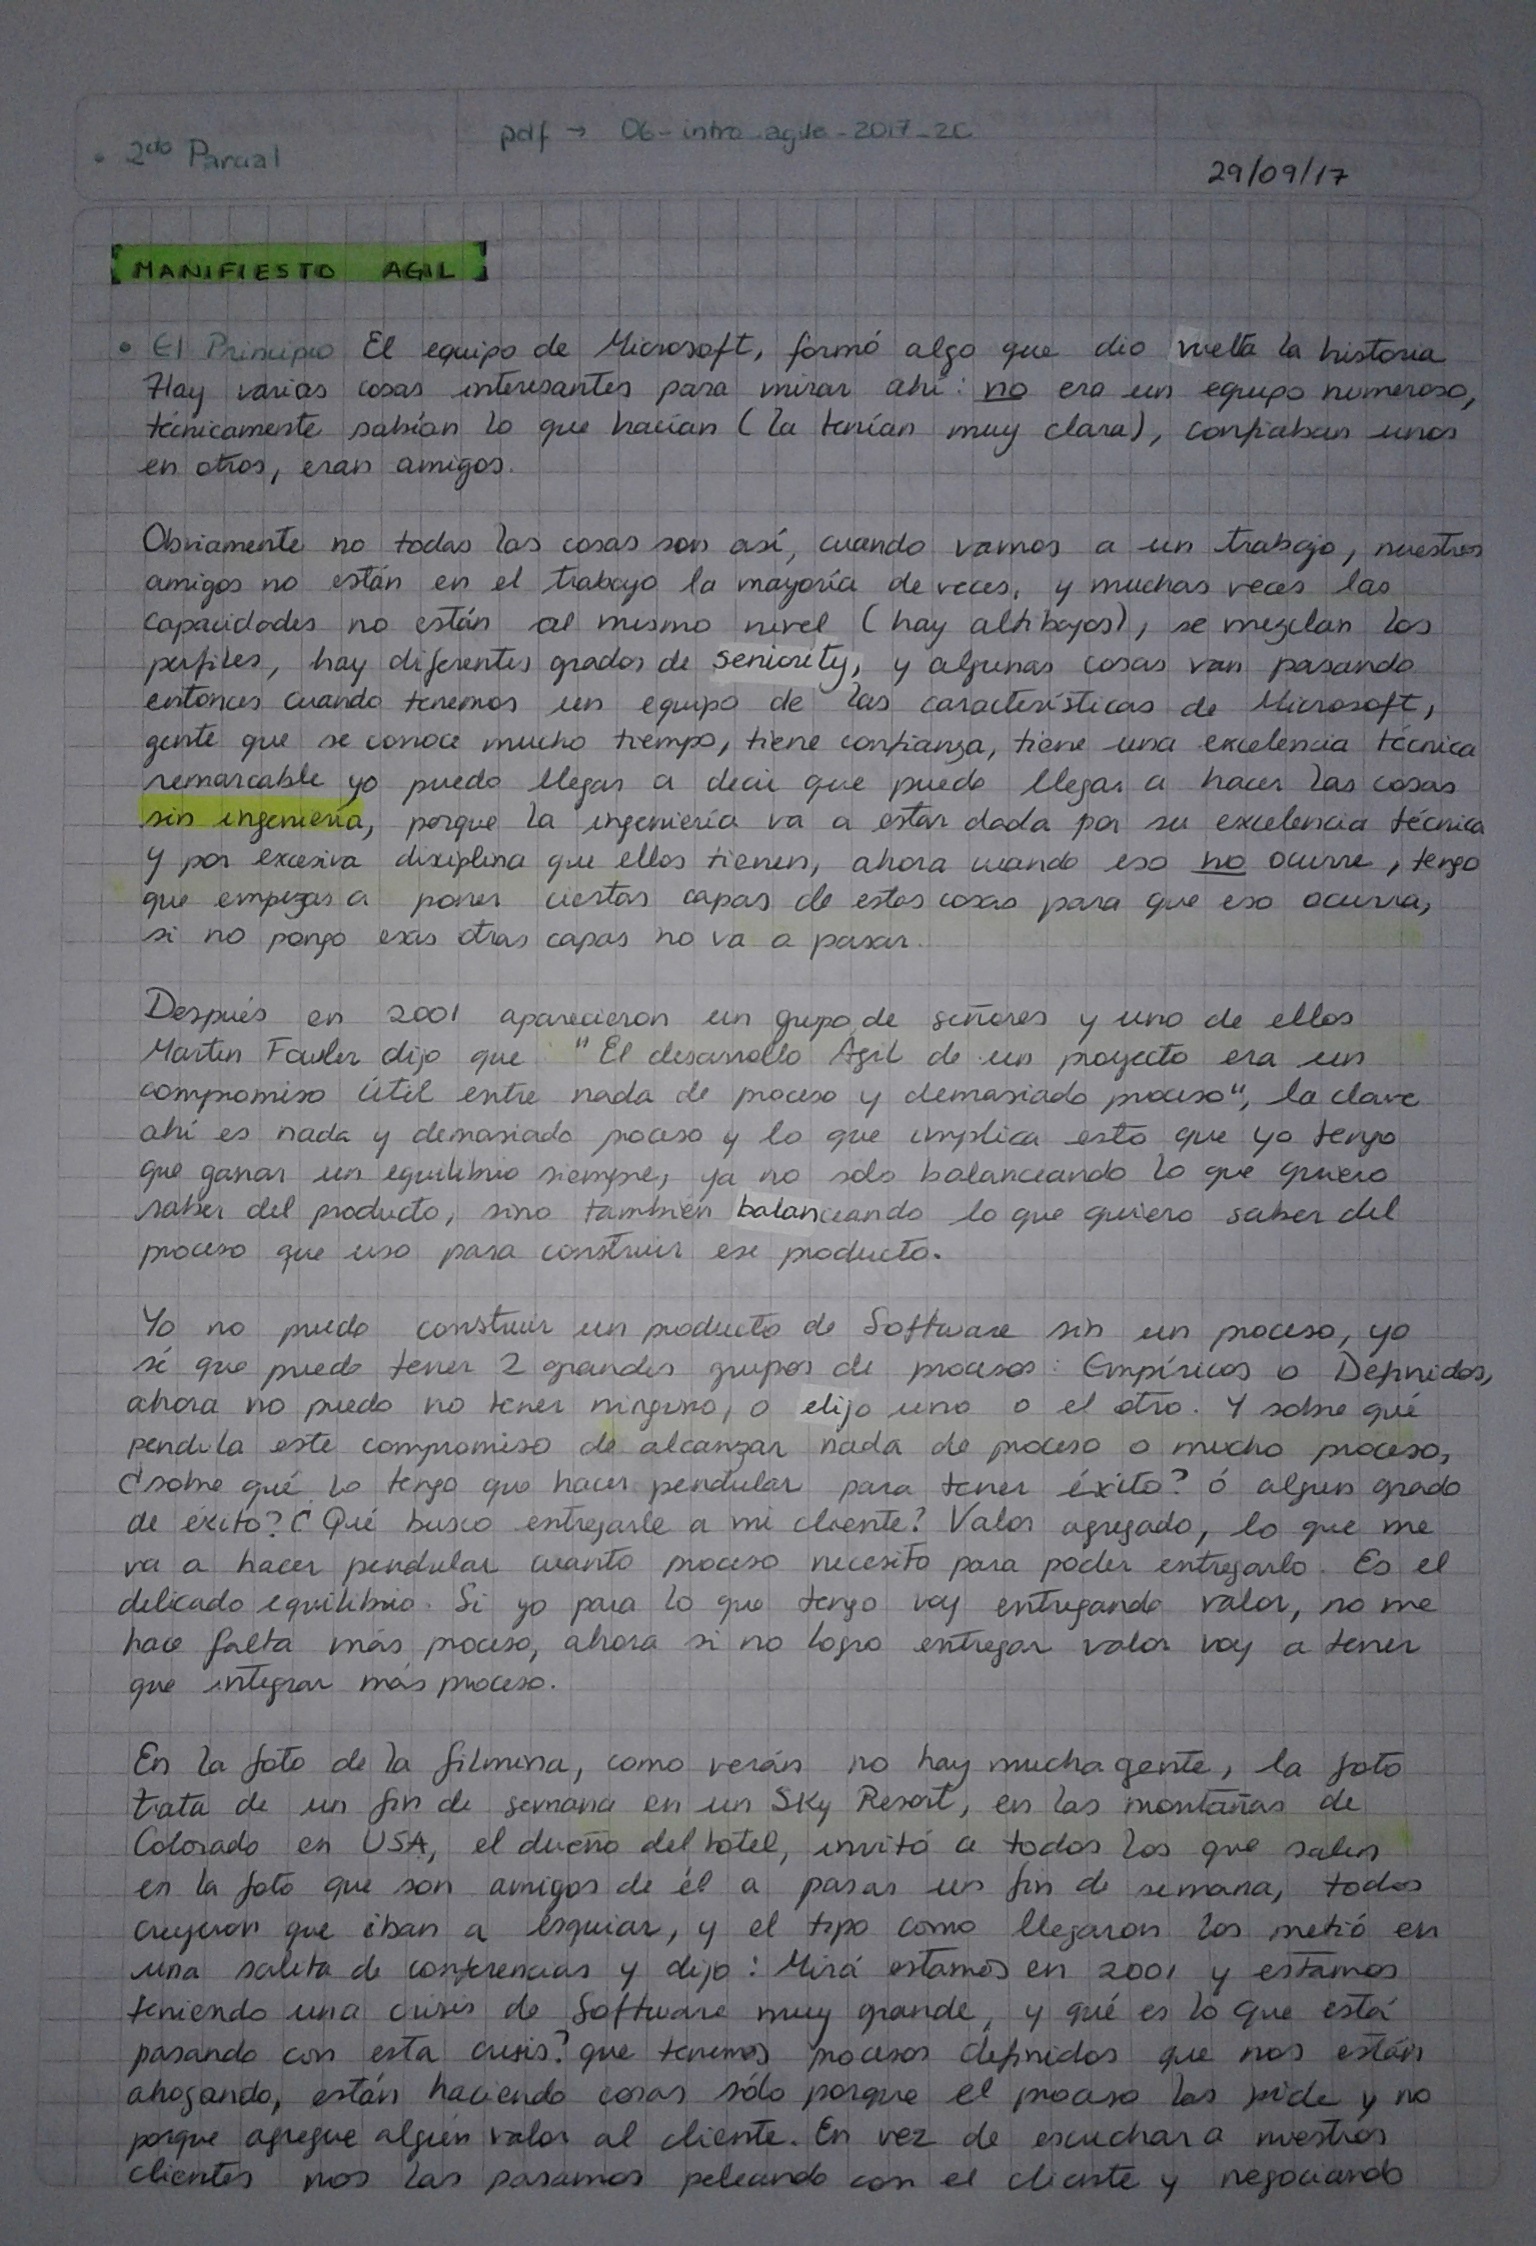 • 2do Parcial
pdf → 06-intro_agile-2017_2C
29/09/17
MANIFIESTO AGIL
• El Principio El equipo de Microsoft, formó algo que dio vuelta la historia
Hay varias cosas interesantes para mirar ahí: no era un equipo numeroso,
técnicamente sabían lo que hacían (la tenían muy clara), confiaban unos
en otros, eran amigos.
Obviamente no todas las cosas son así, cuando vamos a un trabajo, nuestros
amigos no están en el trabajo la mayoría de veces, y muchas veces las
capacidades no están al mismo nivel (hay altibajos), se mezclan los
perfiles, hay diferentes grados de seniority, y algunas cosas van pasando
entonces cuando tenemos un equipo de las características de Microsoft,
gente que se conoce mucho tiempo, tiene confianza, tiene una excelencia técnica
remarcable yo puedo llegar a decir que puedo llegar a hacer las cosas
sin ingeniería, porque la ingeniería va a estar dada por su excelencia técnica
y por excesiva disciplina que ellos tienen, ahora cuando eso no ocurre, tengo
que empezar a poner ciertas capas de estas cosas para que eso ocurra,
si no pongo esas otras capas no va a pasar.
Después en 2001 aparecieron un grupo de señores y uno de ellos
Martin Fowler dijo que "El desarrollo Agil de un proyecto era un
compromiso útil entre nada de proceso y demasiado proceso", la clave
ahí es nada y demasiado proceso y lo que implica esto que yo tengo
que ganar un equilibrio siempre, ya no solo balanceando lo que quiero
saber del producto, sino también balanceando lo que quiero saber del
proceso que uso para construir ese producto.
Yo no puedo construir un producto de Software sin un proceso, yo
sé que puedo tener 2 grandes grupos de procesos: Empíricos o Definidos,
ahora no puedo no tener ninguno, o elijo uno o el otro. Y sobre qué
pendula este compromiso de alcanzar nada de proceso o mucho proceso,
¿sobre qué lo tengo que hacer pendular para tener éxito? ó algun grado
de éxito? ¿Qué busco entregarle a mi cliente? Valor agregado, lo que me
va a hacer pendular cuanto proceso necesito para poder entregarlo. Es el
delicado equilibrio. Si yo para lo que tengo voy entregando valor, no me
hace falta más proceso, ahora si no logro entregar valor voy a tener
que integrar más proceso.
En la foto de la filmina, como verán no hay mucha gente, la foto
trata de un fin de semana en un Sky Resort, en las montañas de
Colorado en USA, el dueño del hotel, invitó a todos los que salen
en la foto que son amigos de él a pasar un fin de semana, todos
creyeron que iban a esquiar, y el tipo como llegaron los metió en
una salita de conferencias y dijo: Mirá estamos en 2001 y estamos
teniendo una crisis de Software muy grande, y qué es lo que está
pasando con esta crisis? que tenemos procesos definidos que nos están
ahogando, están haciendo cosas sólo porque el proceso las pide y no
porque agregue algún valor al cliente. En vez de escuchar a nuestros
clientes nos las pasamos peleando con el cliente y negociando